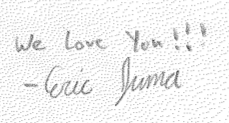 We Love You!!!
- Eric Juma